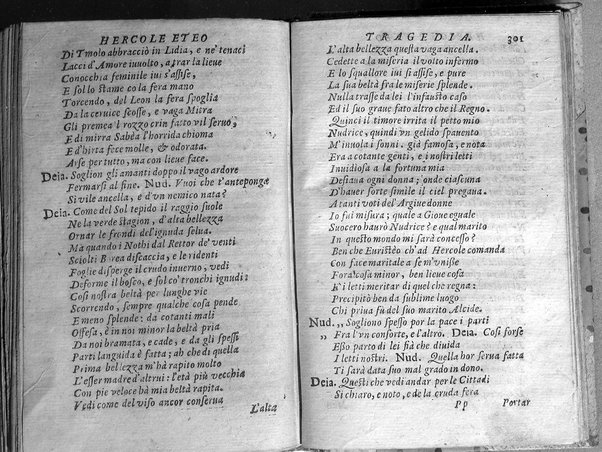 HERCOLE ETEO
Di Tmolo abbracciò in Lidia, e ne' tenaci
Lacci d'Amore inuolto, a trar la lieue
Conocchia feminile iui s'assise,
E sol lo stame co la fera mano
Torcendo, del Leon la fera spoglia
Da la ceruice scosse, e vaga Mitra
Gli premea l rozzo crin fatto vil seruo,
E di mirra Sabea l'horrida chioma
E d'hirta fece molle, & odorata.
Arse per tutto, ma con lieue face.
Deia. Soglion gli amanti doppo il vago ardore
Fermarsi al fine. Nud. Vuoi che t'antepongæ
Si vile ancella, e d'vn nemico nata?
Deia. Come del Sol tepido il raggio suole
Ne la verde stagion, d'alta bellezza
Ornar le frondi de l'ignuda selua.
Ma quando i Nothi dal Rettor de' venti
Sciolti Borea discaccia, e le ridenti
Foglie disperge il crudo inuerno, vedi
Deforme il bosco, e sol co' tronchi ignudi:
Così nostra beltà per lunghe vie
Scorrendo, sempre qualche cosa pende
E meno splende: da cotanti mali
Offesa, è in noi minor la beltà pria
Da noi bramata, e cade, e da gli spessi
Parti languida è fatta; ah che di quella
Prima bellezza m'hà rapito molto
L'esser madre d'altrui: l'età più vecchia
Con piè veloce hà mia beltà rapita.
Vedi come del viso ancor conserua
L'alta
TRAGEDIA. 301
L'alta bellezza questa vaga ancella.
Cedette a la miseria il volto infermo
E lo squallore iui si assise, e pure
La sua beltà fra le miserie splende.
Nulla trasse da lei l'infausto caso
Ed il suo graue fato altro che il Regno.
Quinci il timore irrita il petto mio
Nudrice, quindi vn gelido spauento
M'inuola i sonni. già famosa, e nota
Era a cotante genti, e i nostri letti
Inuidiosa a la fortuna mia
Desiaua ogni donna; onde ciascuna
D'hauer sorte simile il ciel pregaua.
A tanti voti del' Argiue donne
Io fui misura; quale a Gioue eguale
Suocero haurò Nudrice? e qual marito
In questo mondo mi sarà concesso?
Ben che Euristèo ch'ad Hercole comanda
Con face maritale a se m'vnisse
Fora cosa minor, ben lieue cosa
E' i letti meritar di quel che regna:
Precipitò ben da sublime luogo
Chi priua fù del suo marito Alcide.
Nud. „ Sogliono spesso per la pace i parti
„ Fra l'vn conforte, e l'altro. Deia. Così forse
Esso parto di lei fia che diuida
I letti nostri. Nud. Quella hor serua fatta
Ti sarà data suo mal grado in dono.
Deia. Questi che vedi andar per le Cittadi
Si chiaro, e noto, e de la cruda fera
Pp Portar